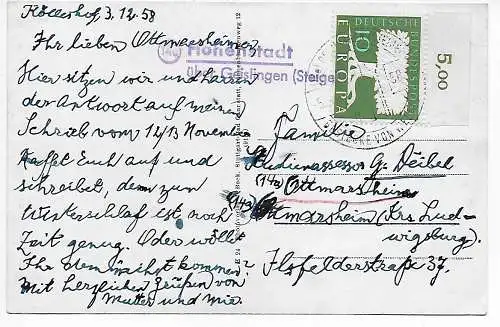 Köllershof, 3.12.58
Ihr lieben Ottmarsheimer!
Hier sitzen wir und lauern
der Antwort auf meinen
Schrieb vom 12/13 November
Raffet Euch auf und
schreibet, denn zum
Winterschlaf ist noch
Zeit genug. Oder wollet
Ihr demnächst kommen?
Mit herzlichen Grüßen von
Mutter und mir.
(14a) Hohenstadt
über Geislingen (Steige
DEUTSCHE
BUNDESPOST
10
EUROPA
5,00
Familie
Studienassessor G. Deibel
(14a) Ottmarsheim
(14a) Ottmarsheim (Krs Lud-
wigsburg).
Ilsfelderstraße 37.